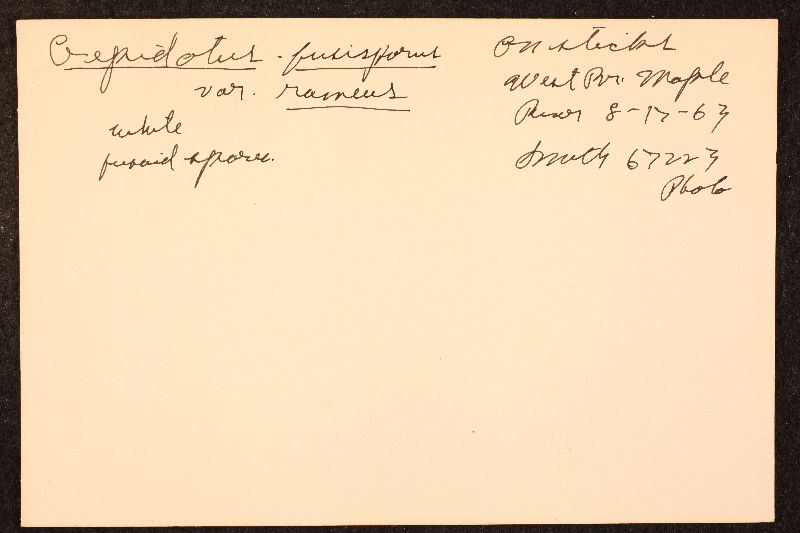 Crepidotus fusisporus
var. rameus
white
fusoid spores.
on sticks
West Br. Maple
River 8-17-63
Smith 67223
Photo